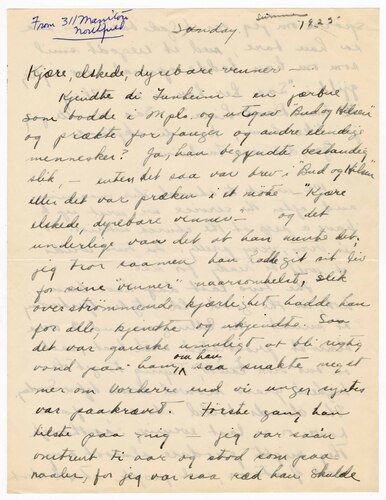 From 311 Manitou
Northfield
Sunday Summer 1925
Kjære, elskede, dyrebare venner
Kjendte di Tunheim — en jærbue
som bodde i Mpls. og utgav "Bud og Hilsen"
og prækte for fanger og andre elendige
mennesker? Ja, han begyndte bestandig
slik, — enten det saa var brev i "Bud og Hilsen"
eller det var præken i et møte — "Kjære
elskede, dyrebare venner" — og det
underlige var det at han mente det;
jeg tror saamen han hadde git sit liv
for sine "venner" naarsomhelst, slik
overstrømmende kjærlighet hadde han
for alle, kjendte og ukjendte. Saa
det var ganske umuligt at bli rigtig
vond paa ham, om han saa snakte noget
mer om Vorherre end vi unger syntes
var paakrævet. Første gang han
hilste paa mig — jeg var saan
omtrent ti aar og stod som paa
naaler, for jeg var saa ræd han skulde